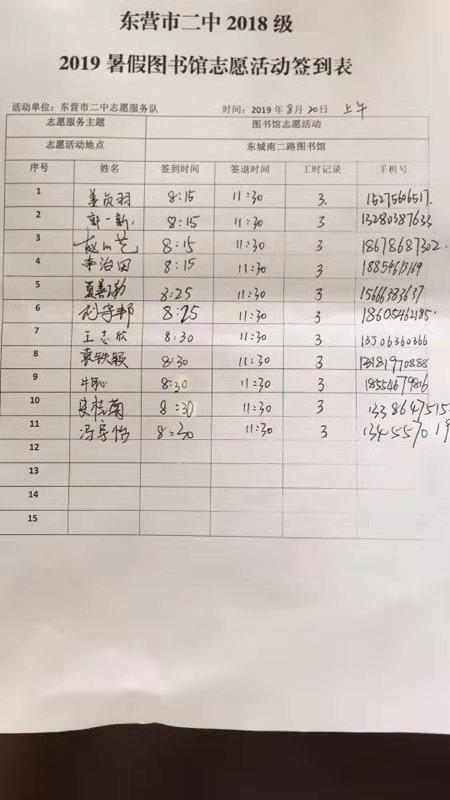 东营市二中 2018 级
2019 暑假图书馆志愿活动签到表
活动单位：东营市二中志愿服务队 时间：2019 年 8 月 20 日 上午
志愿服务主题 图书馆志愿活动
志愿活动地点 东城南二路图书馆
序号 姓名 签到时间 签退时间 工时记录 手机号
1 8:15 11:30 3. 15275606517.
2 郭一新 8:15 11:30 3 13280387633
3 8:15 11:30 3 18678687302.
4 李治田 8:15 11:30 3
5 8:25 11:30 3
6 8:25 11:30 3 18605462185.
7 王志欣 8:30 11:30 3 13506360366
8 袁轶颖 8:30 11:30 3
9 8:30 11:30 3
10 8:30 11:30 3
11 冯宇怡 8:30 11:30 3
12
13
14
15